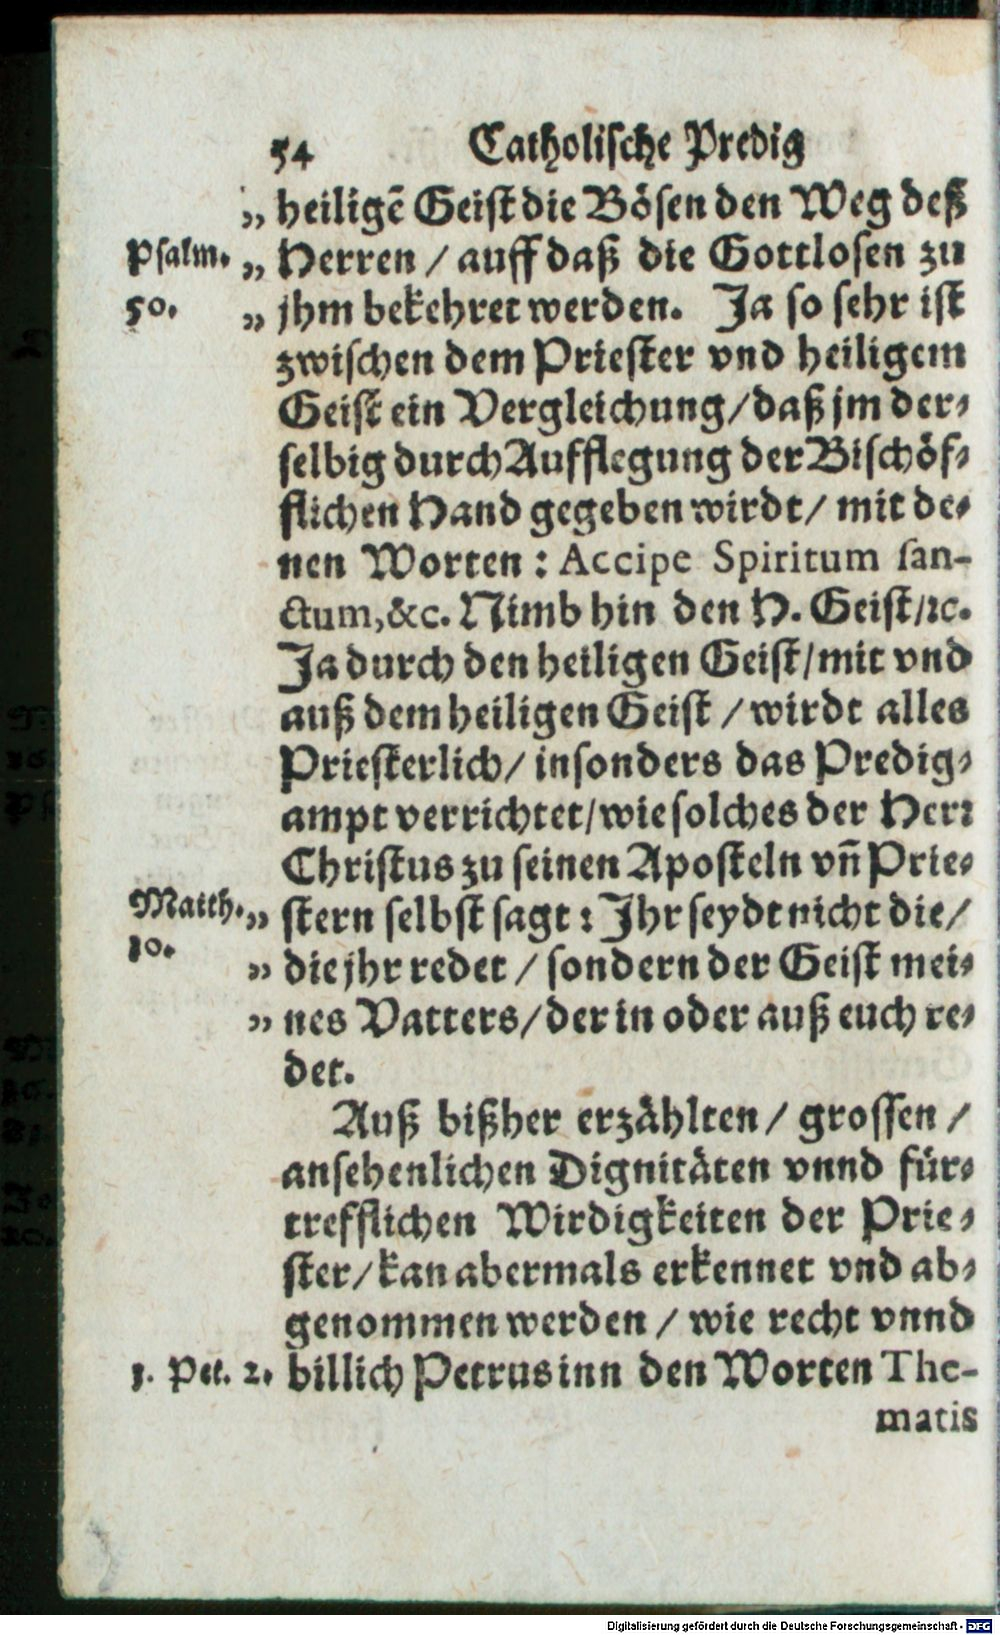 54 Catholische Predig
„ heiligē Geist die Bösen den Weg deß
Psalm. „ Herren / auff daß die Gottlosen zu
50. „ jhm bekehret werden. Ja so sehr ist
zwischen dem Priester vnd heiligem
Geist ein Vergleichung/daß jm der-
selbig durch Aufflegung der Bischöf-
flichen Hand gegeben wirdt/ mit de-
nen Worten : Accipe Spiritum san-
ctum,&c. Nimb hin den H. Geist/ꝛc.
Ja durch den heiligen Geist/mit vnd
auß dem heiligen Geist / wirdt alles
Priesterlich/ insonders das Predig-
ampt verrichtet/wie solches der Herꝛ
Christus zu seinen Aposteln vñ Prie-
Matth. „ stern selbst sagt : Ihr seydt nicht die/
10. „ die jhr redet / sondern der Geist mei-
„ nes Vatters/der in oder auß euch re-
det.
Auß bißher erzählten/ grossen /
ansehenlichen Dignitäten vnnd für-
trefflichen Wirdigkeiten der Prie-
ster/kan abermals erkennet vnd ab-
genommen werden / wie recht vnnd
1. Pet. 2. billich Petrus inn den Worten The-
matis
Digitalisierung gefördert durch die Deutsche Forschungsgemeinschaft - DFG